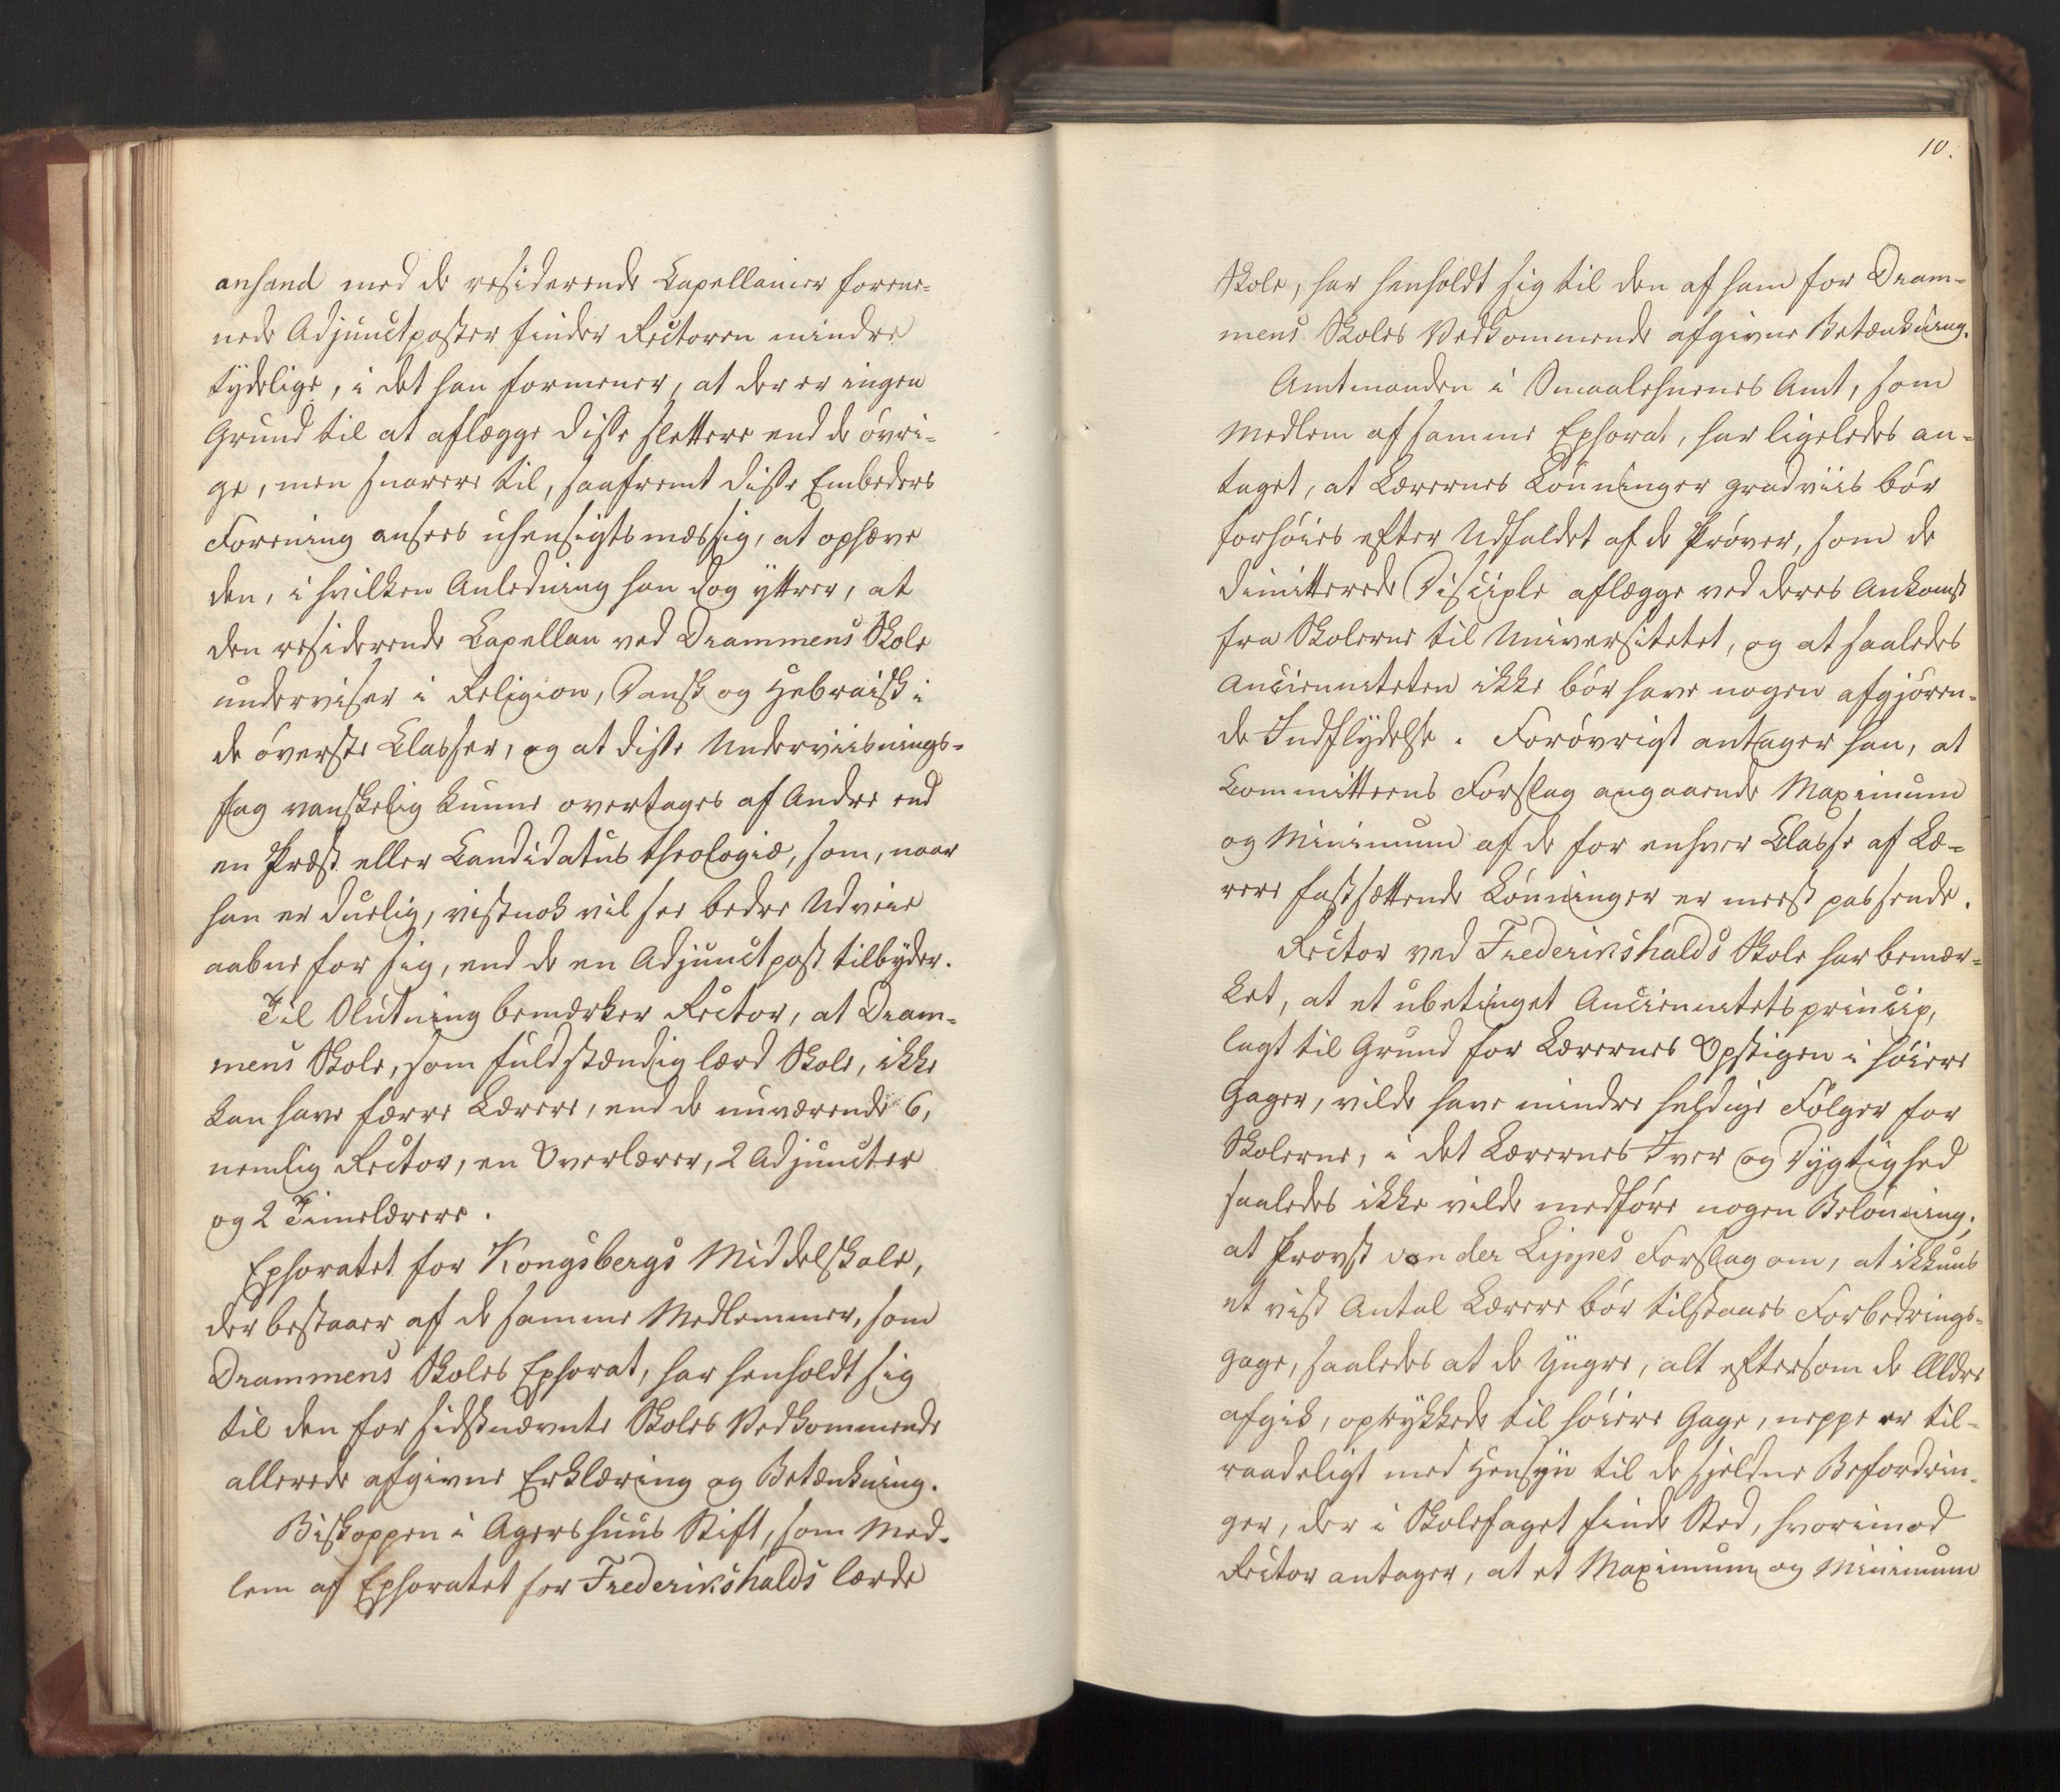 anhand med de residerende Capellanier forene-
nede Adjunctposter finder Rectoren mindre
tydelige, i det han formener, at der er ingen
Grund til at aflægge disse slettere end de övri-
ge, men snarere til, saafremt disse Embeders
Forening ansees uhensigtsmæssig, at ophæve
den, i hvilken Anledning han dog yttrer, at
den residerende Capellan ved Drammens Skole
underviser i Religion, Dansk og Hebraisk i
de överste Classer, og at disse Underviisnings-
fag vanskelig kunne overtages af Andre end
en Præst eller Candidatus theologiæ, som, naar
han er duelig, vistnok vil see bedre Udveie
aabne for sig, end de en Adjunctpost tilbyder.
Til Slutning bemærker Rector, at Dram-
mens Skole, som fuldstændig lærd Skole, ikke
kan have færre Lærere, end de nuværende 6,
nemlig Rector, en Overlærer, 2 Adjuncter
og 2 Timelærere.
Ephoratet for Kongsbergs Middelskole,
der bestaaer af de samme Medlemmer, som
Drammens Skoles Ephorat, har henholdt sig
til den for sidstnævnte Skoles Vedkommende
allerede afgivne Erklæring og Betænkning.
Biskoppen i Agershuus Stift, som Med-
lem af Ephoratet for Frederikshalds lærde
10.
Skole, har henholdt sig til den af ham for Dram-
mens Skoles Vedkommende afgivne Betænkning.
Amtmanden i Smaalehnenes Amt, som
Medlem af samme Ephorat, har ligeledes an-
taget, at Lærernes Lönninger gradviis bör
forhöies efter Udfaldet af de Pröver, som de
dimitterede Disciple aflægge ved deres Ankomst
fra Skolerne til Universitetet, og at saaledes
Ancienniteten ikke bör have nogen afgjören-
de Indflydelse. Forövrigt antager han, at
Committeens Forslag angaaende Maximum
og Minimum af de for enhver Classe af Læ-
rere fastsættende Lönninger er meest passende.
Rector ved Frederikshalds Skole har bemær-
ket, at et ubetinget Anciennitetsprincip,
lagt til Grund for Lærernes Opstigen i höiere
Gager, vilde have mindre heldige Fölger for
Skolerne, i det Lærernes Iver og Dygtighed
saaledes ikke vilde medföre nogen Belönning;
at Provst von der Lippes Forslag om, at ikkuns
et vist Antal Lærere bör tilstaaes Forbedrings-
gage, saaledes at de Yngre, alt eftersom de Ældre
afgik, oprykkede til höiere Gage, neppe er til-
raadeligt med Hensyn til de sjeldne Befordrin-
ger, der i Skolefaget finde Sted, hvorimod
Rector antager, at et Maximum og Minimum